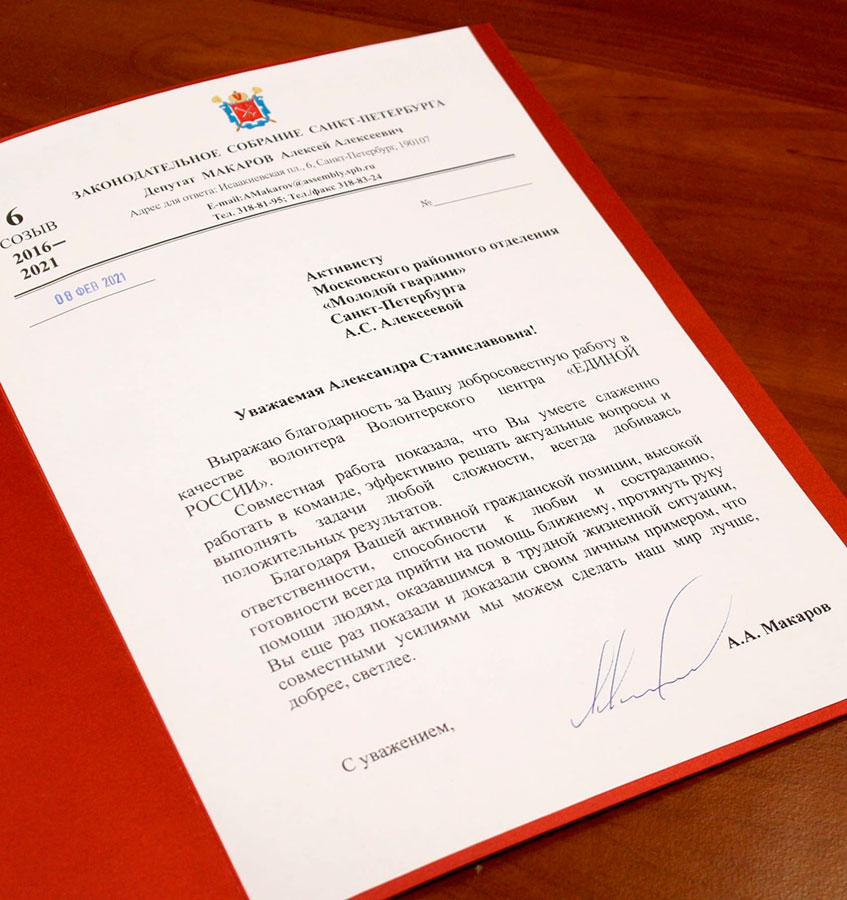 ЗАКОНОДАТЕЛЬНОЕ СОБРАНИЕ САНКТ-ПЕТЕРБУРГА
Депутат МАКАРОВ Алексей Алексеевич
Адрес для ответа: Исаакиевская пл., 6, Санкт-Петербург, 190107
E-mail:AMakarov@assembly.spb.ru
Тел. 318-81-95; Тел./факс 318-83-24
6
СОЗЫВ
2016–
2021
№
08 ФЕВ 2021
Активисту
Московского районного отделения
«Молодой гвардии»
Санкт-Петербурга
А.С. Алексеевой
Уважаемая Александра Станиславовна!
Выражаю благодарность за Вашу добросовестную работу в
качестве волонтера Волонтерского центра «ЕДИНОЙ
РОССИИ».
Совместная работа показала, что Вы умеете слаженно
работать в команде, эффективно решать актуальные вопросы и
выполнять задачи любой сложности, всегда добиваясь
положительных результатов.
Благодаря Вашей активной гражданской позиции, высокой
ответственности, способности к любви и состраданию,
готовности всегда прийти на помощь ближнему, протянуть руку
помощи людям, оказавшимся в трудной жизненной ситуации,
Вы еще раз показали и доказали своим личным примером, что
совместными усилиями мы можем сделать наш мир лучше,
добрее, светлее.
С уважением,
А.А. Макаров